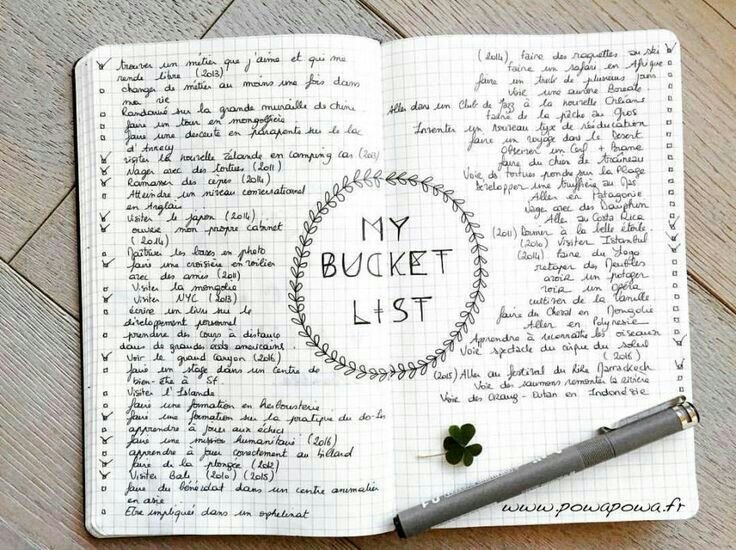 trouver un métier que j'aime et qui me
rende libre (2013)
changer de métier au moins une fois dans
ma vie
Randonné sur la grande muraille de chine
faire un tour en mongolfière
faire une descente en parapente sur le lac
d'Annecy
visiter la nouvelle Zélande en camping car (2013)
Nager avec des tortues (2011)
Ramasser des cèpes (2014)
Atteindre un niveau conversationnel
en Anglais
Visiter le Japon (2014)
ouvrir mon propre cabinet
(2014)
Maîtriser les bases en photo
faire une croisière en voilier
avec des amies (2011)
Visiter la mongolie
Visiter NYC (2013)
écrire un livre sur le
développement personnel
prendre des cours à distance
dans de grandes américains
Voir le grand Canyon (2016)
faire un stage dans un centre de
bien-être à Sf
Visiter l'Islande
faire une formation en herboristerie
faire une formation sur la pratique du do-In
apprendre à jouer aux échecs
faire une mission humanitaire (2016)
apprendre à jouer correctement au billard
faire de la plongée (2012)
Visiter Bali (2010) (2015)
faire du bénévolat dans un centre animalier
en asie
Etre impliquée dans un orphelinat
MY
BUCKET
LIST
(2014) faire des raquettes au ski
faire un safari en Afrique
faire un trek de plusieurs jours
Voir une aurore Boréale
Aller dans un Club de Jazz à la nouvelle Orléans
faire de la pêche au Gros
Inventer un nouveau type de rééducation
faire un voyage dans le Desert
Observer un Cerf + Brame
faire du chien de traineau
Voir de tortues pondre sur la Plage
Développer une
Aller en Patagonie
Nage avec des Dauphin
Aller au Costa Rica
(2011) Dormir à la belle étoile
(2010) Visiter Istanbul
(2014) faire du Yoga
retaper des Meubles
avoir un potager
voir un opéra
cultiver de la Vanille
faire du Cheval en Mongolie
Aller en Polynesie
Apprendre à reconnaître les oiseaux
Voir spectacle du cirque du soleil
(2016)
(2015) Aller au festival du Rire Marrackech
Voir des saumons remonter la rivière
Voir des Orang-Outan en Indonésie
www.powapowa.fr